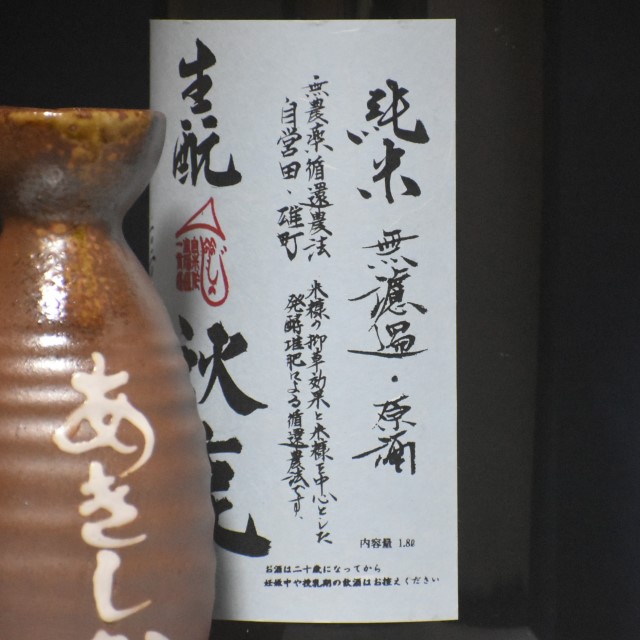 純米 無濾過・原酒
無農薬、循還農法
自営田・雄町
米糠の抑草効果と米糠を中心とした
発酵堆肥による循還農法です。
生酛
秋鹿
内容量 1.8ℓ
お酒は二十歳になってから
妊娠中や授乳期の飲酒はお控えください
あきし